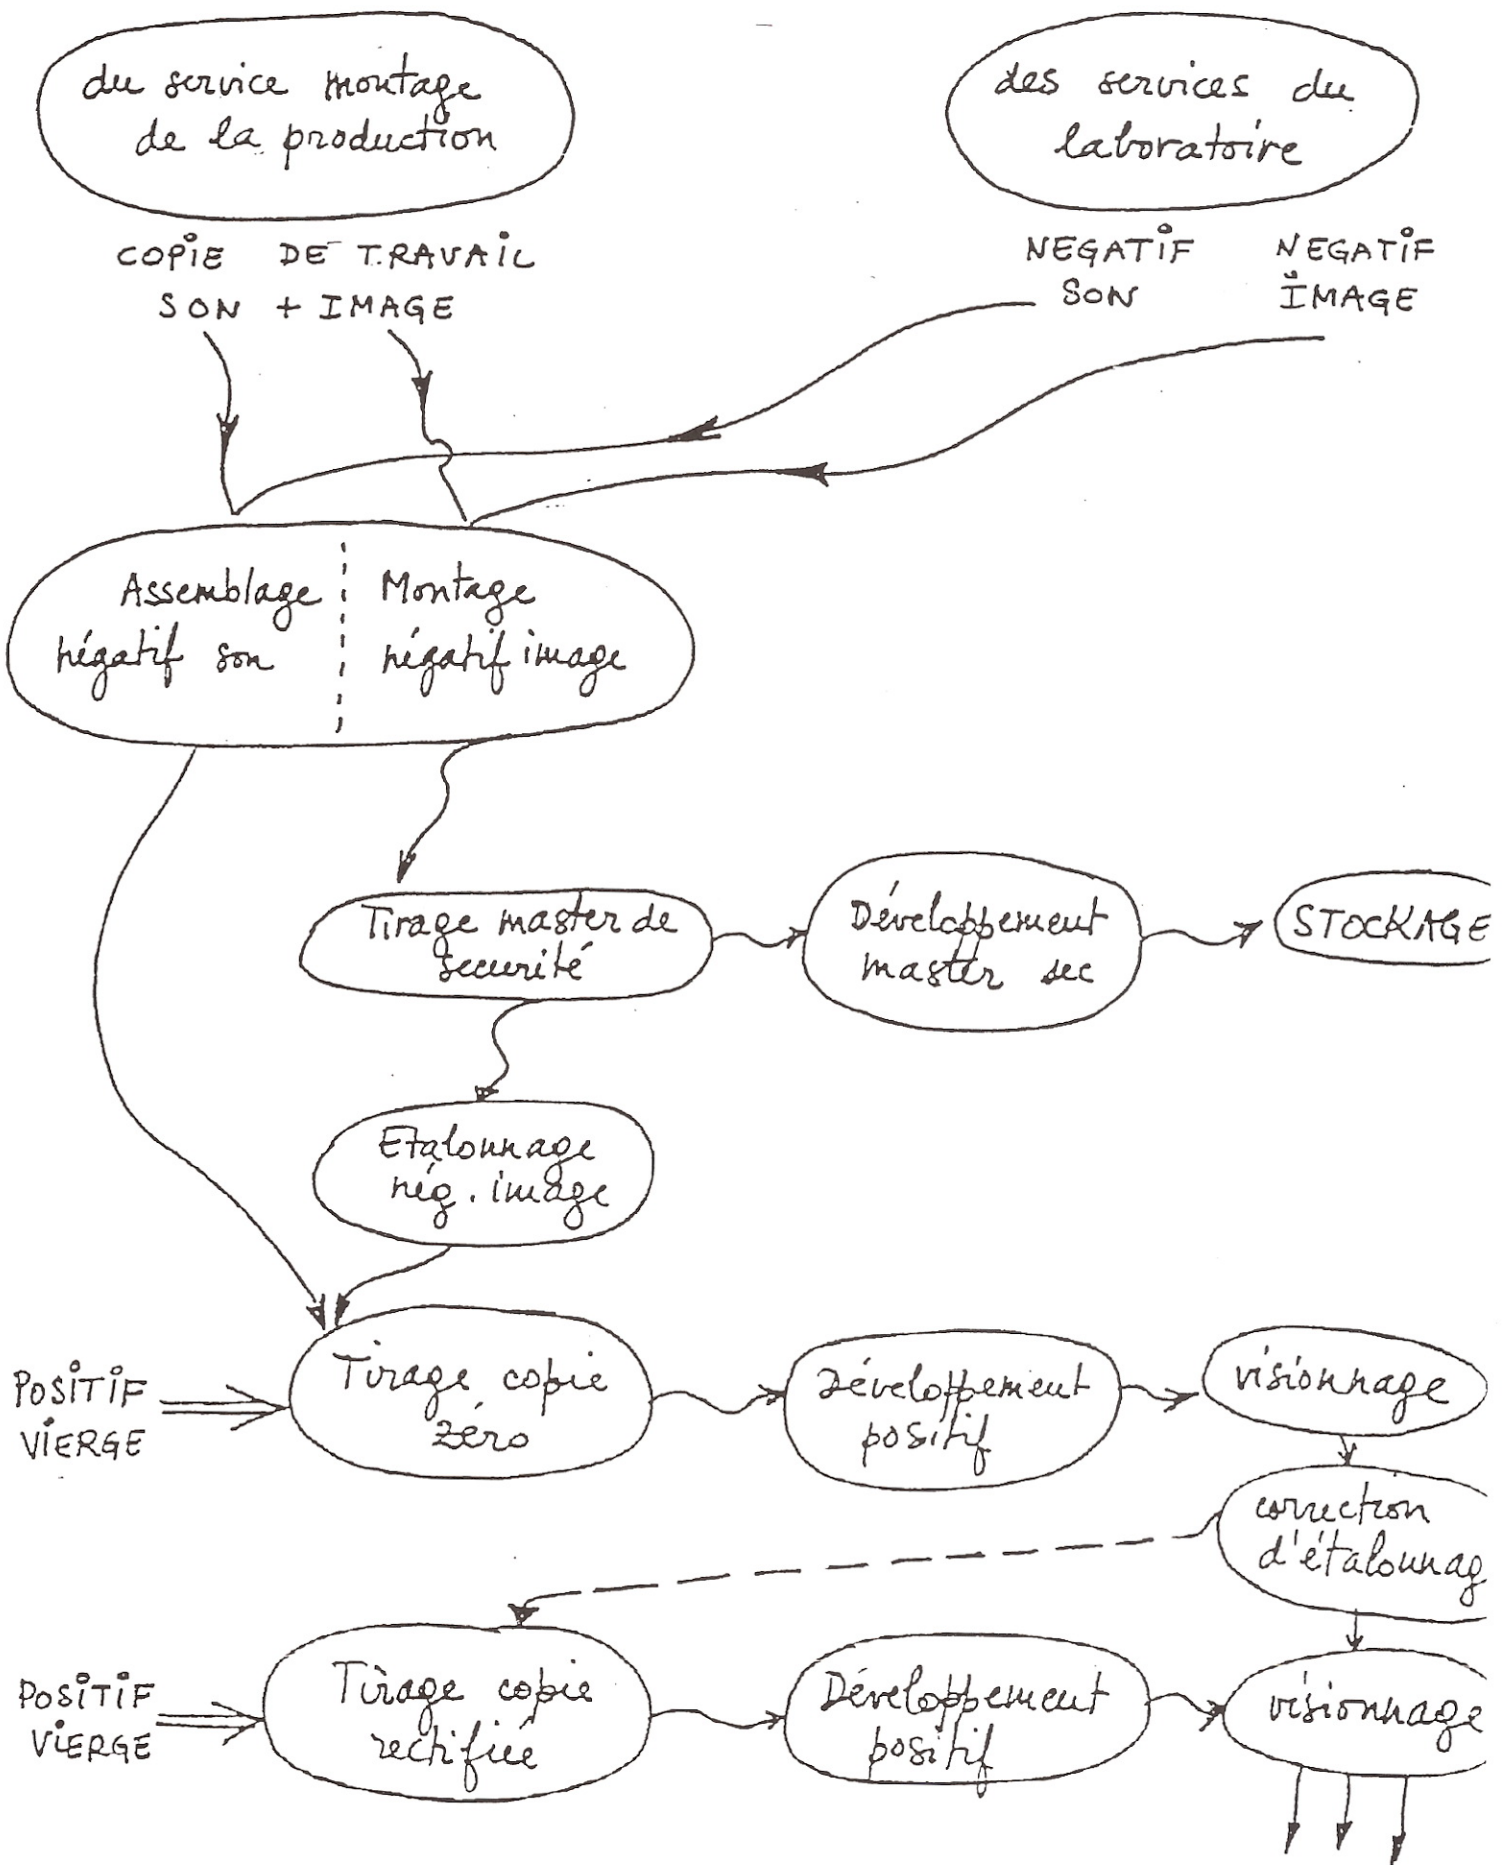 du service montage
de la production
des services du
laboratoire
COPIE DE TRAVAIL
SON + IMAGE
NEGATIF
SON
NEGATIF
IMAGE
Assemblage
négatif son
Montage
négatif image
Tirage master de
securité
Développement
master sec
STOCKAGE
Etalonnage
nég. image
POSITIF
VIERGE
Tirage copie
zéro
Développement
positif
visionnage
correction
d'étalonnag
POSITIF
VIERGE
Tirage copie
rectifiée
Développement
positif
visionnage